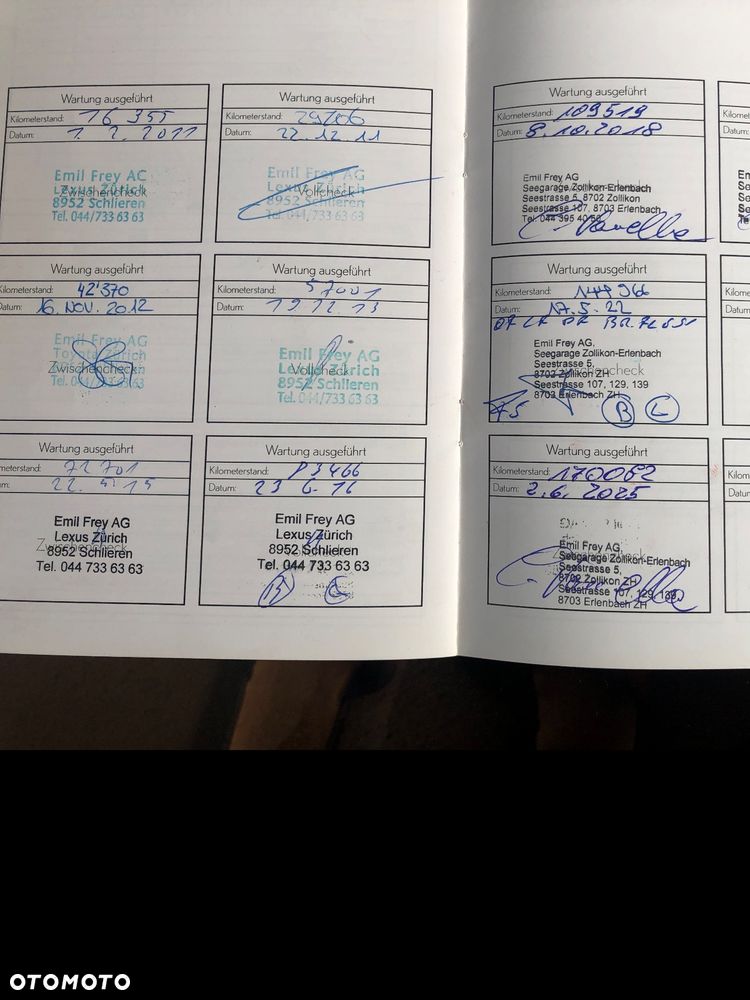 Wartung ausgeführt
Kilometerstand: 16 355
Datum: 1. 2. 2011
Emil Frey AG
Lexus Zürich
Zwischencheck
8952 Schlieren
Tel. 044/733 63 63
Wartung ausgeführt
Kilometerstand: 29206
Datum: 22.12.11
Emil Frey AG
Lexus Zürich
Vollcheck
8952 Schlieren
Tel. 044/733 63 63
Wartung ausgeführt
Kilometerstand: 109519
Datum: 8.10.2018
Emil Frey AG
Seegarage Zollikon-Erlenbach
Seestrasse 5, 8702 Zollikon
Seestrasse 107, 8703 Erlenbach
Tel. 044 395 40 50
Wartung ausgeführt
Kilometerstand: 42'370
Datum: 16. NOV. 2012
Emil Frey AG
Toyota Zürich
Zwischencheck
8952 Schlieren
Tel. 044/733 63 63
Wartung ausgeführt
Kilometerstand: 57001
Datum: 19 12 13
Emil Frey AG
Lexus Zürich
Vollcheck
8952 Schlieren
Tel. 044/733 63 63
Wartung ausgeführt
Kilometerstand: 144966
Datum: 17.5.22
Emil Frey AG,
Seegarage Zollikon-Erlenbach
Seestrasse 5,
8702 Zollikon ZH
Seestrasse 107, 129, 139
8703 Erlenbach ZH
B C
Wartung ausgeführt
meterstand: 72 701
22. 4. 15
Emil Frey AG
Lexus Zürich
Zwischencheck
8952 Schlieren
Tel. 044 733 63 63
Wartung ausgeführt
Kilometerstand: 83466
Datum: 23 6. 16
Emil Frey AG
Lexus Zürich
8952 Schlieren
Tel. 044 733 63 63
B C
Wartung ausgeführt
Kilometerstand: 170062
Datum: 2.6.2025
Emil Frey AG,
Seegarage Zollikon-Erlenbach
Seestrasse 5,
8702 Zollikon ZH
Seestrasse 107, 129, 139,
8703 Erlenbach ZH
OTOMOTO